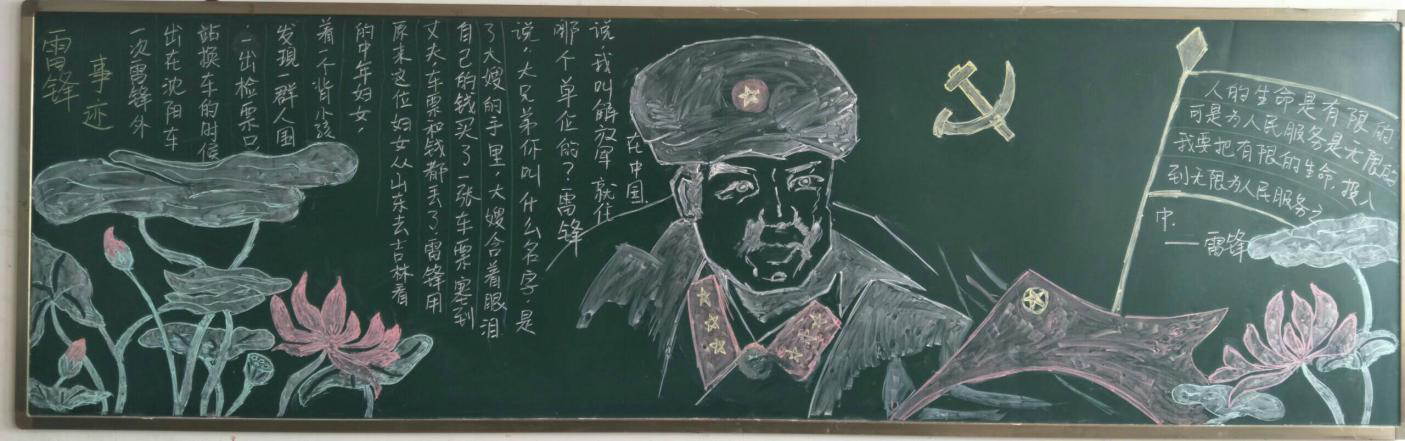 雷锋
事迹
一次雷锋外
出在沈阳车
站换车的时候
一出检票口
发现一群人围
着一个背小孩
的中年妇女,
原来这位妇女从山东去吉林看
丈夫车票和钱都丢了,雷锋用
自己的钱买了一张车票塞到
了大嫂的手里,大嫂含着眼泪
说,大兄弟你叫什么名字,是
哪个单位的?雷锋
说,我叫解放军 就住
在中国.
人的生命是有限的
可是为人民服务是无限的
我要把有限的生命,投入
到无限为人民服务之
中.
——雷锋